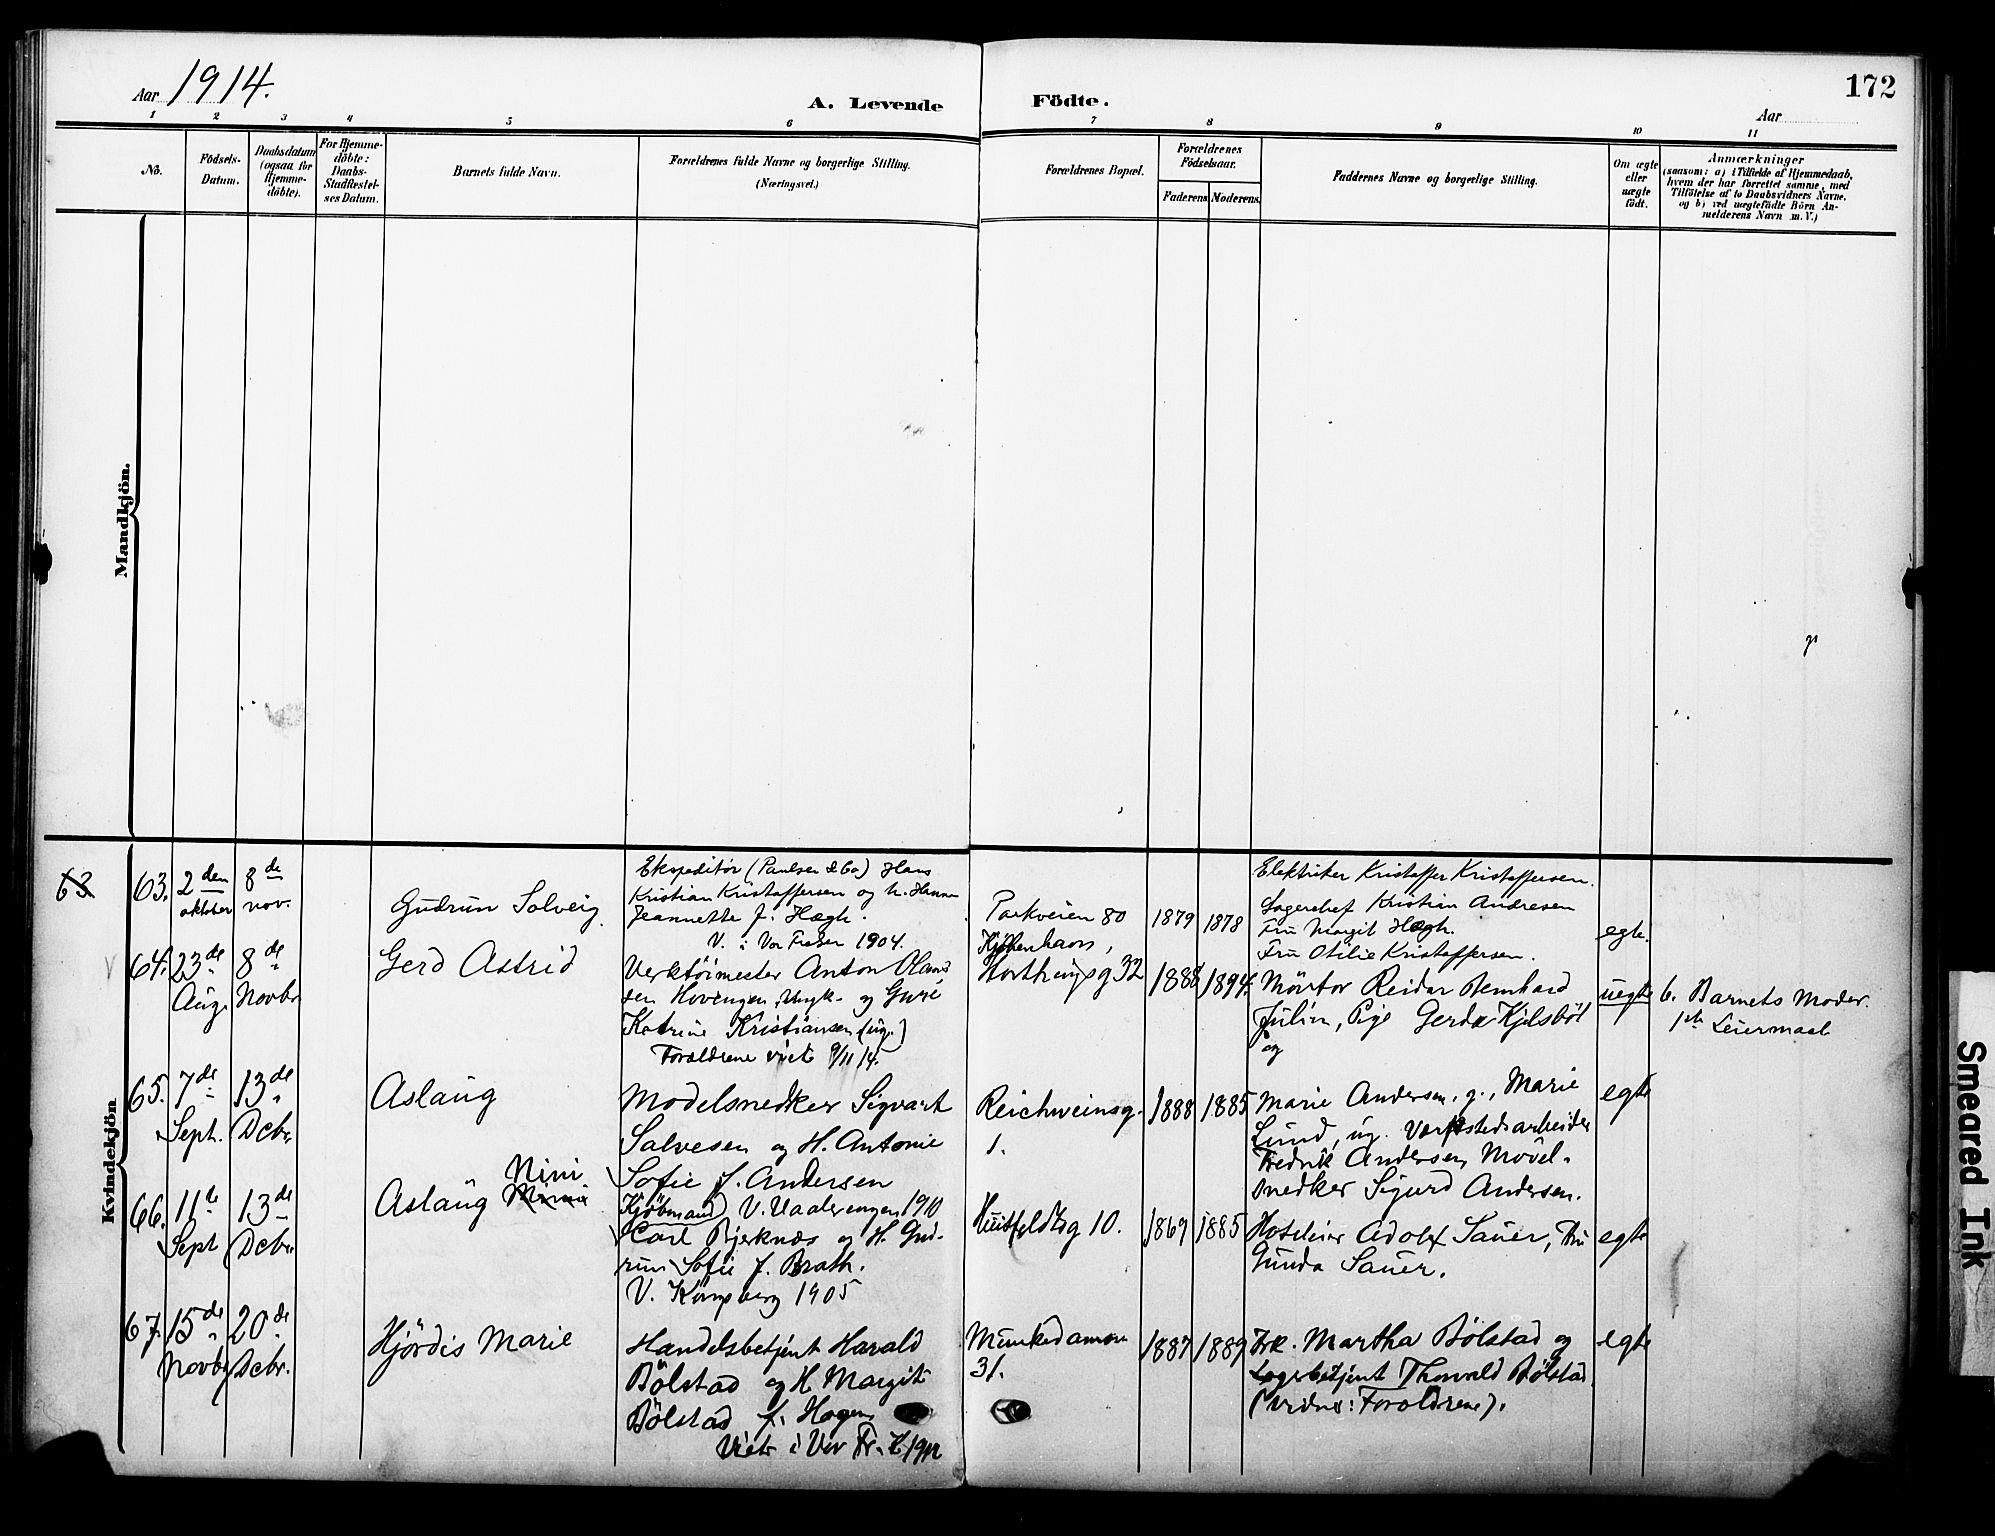 Aar 1914.
A. Levende Födte.
172
Aar
1 2 3 4 5 6 7 8 9 10 11
No.
Födsels-
Datum.
Daabsdatum
(ogsaa for
Hjemme-
döbte).
For Hjemme-
döbte:
Daabs-
Stadfæstel-
ses Datum.
Barnets fulde Navn.
Forældrenes fulde Navne og borgerlige Stilling.
(Næringsvei.)
Forældrenes Bopæl.
Forældrenes
Födselsaar.
Faderens
Moderens.
Faddernes Navne og borgerlige Stilling.
Om ægte
eller
uægte
födt.
Anmærkninger
(saasom: a) i Tilfælde af Hjemmedaab,
hvem der har forrettet samme, med
Tilföielse af to Daabsvidners Navne.
og b) ved uægtefödte Börn An-
melderens Navn m.V.)
Mandkjön.
Kvindekjön
63
63.
2den
oktober
8de
nov.
Gudrun Solveig
Ekspeditör (Paulsen & Co) Hans
Kristian Kristoffersen og h. Hanna
Jeannette f. Hægh.
V. i Vor Frelser 1904.
Parkveien 80
1879
1878
Elektriker Kristoffer Kristoffersen.
Lagerchef Kristian Andresen
Fru Margit Hægh.
Fru Otilie Kristoffersen.
egte.
64.
23de
Aug.
8de
Novbr
Gerd Astrid
Verktöimester Anton Olaus
sen Hovengen, Ungk. og Guré
Katrine Kristiansen (ug.)
Forældrene viet 9/11 14.
Kjöbenhavn,
1888
1894.
Mürtor Reidar Bernhard
Julin, Pige Gerda Kjelsböl
og
uegte
6. Barnets Moder.
1ste Leiermaal
65.
7de
Sept.
13de
Dcbr.
Aslaug
Modelsnedker Sigvart
Salvesen og H. Antonie
Sofie f. Andersen
V. Vaalerengen 1910
Reichweinsg.
1.
1888
1885
Marie Andersen, g., Marie
Lund, ug. Verkstedsarbeider
Fredrik Andersen, Möbel-
snedker Sigurd Andersen.
egte
66.
11te
Sept
13de
Dcbr.
Aslaug Nini
(Kjöbmand)
Carl Bjerknæs og H. Gud-
run Sofie f. Brath.
V. Kongsberg 1905
Huitfeldtsg 10.
1869
1885
Hoteleier Adolf Sauer, Fru
Gunda Sauer.
egte
67.
15de
Novbr
20de
Dcbr.
Hjördis Marie
Handelsbetjent Harald
Bölstad og H. Margit
Bölstad f. Hagen
Viet i Vor Fr. K. 1912
Munkedamsv
31.
1887
1889
Frk. Martha Bölstad og
Lagerbetjent Thorvald Bölstad.
egte
Smeared Ink